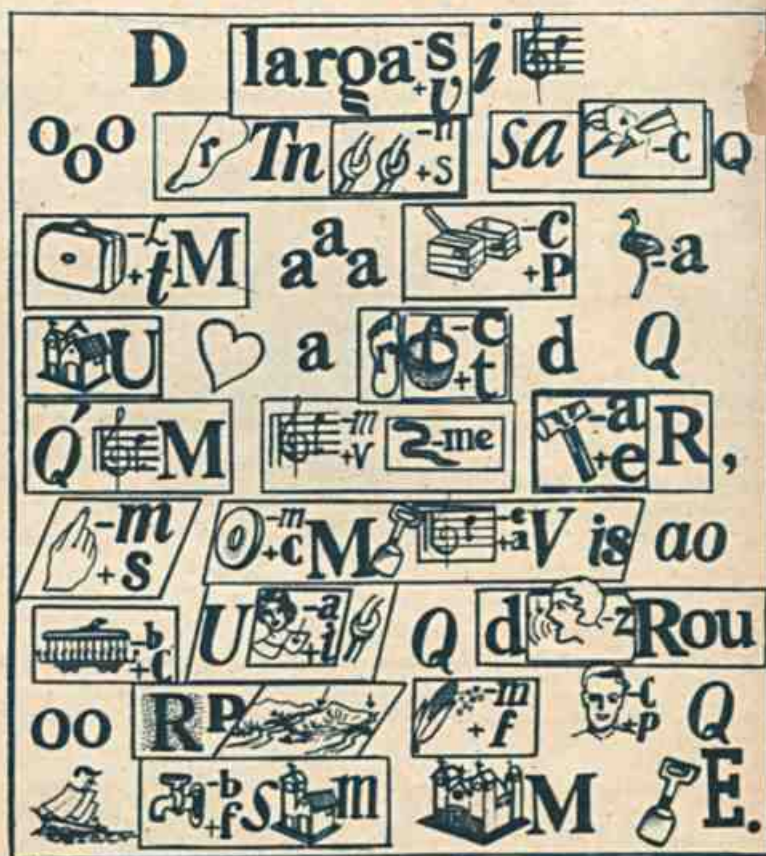 D larga -s +v i
ooo r Tn -n +s sa -c Q
-L +t M aaa -c +p -a
U a r -c +t d Q
Q' M -m +v -me -a +e R,
-m +s -m +c M -e +a V is ao
-b +C U -a +i Q d -z Rou
oo R P -m +f -c +p Q
-b +f S m M E.